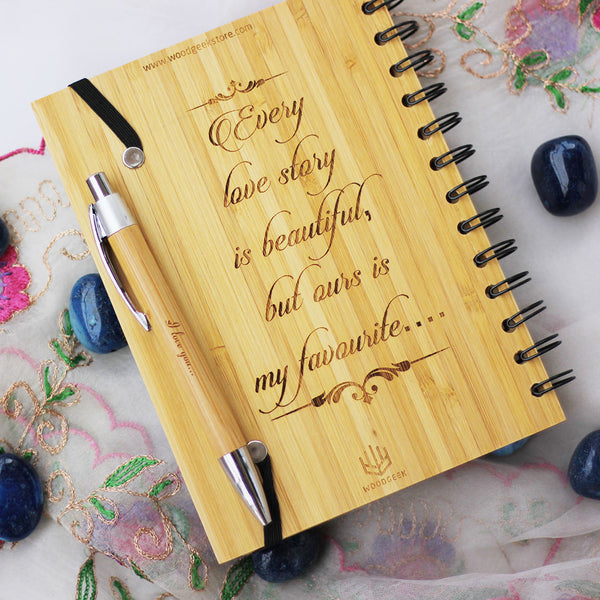 www.woodgeekstore.com
Every
love story
is beautiful,
but ours is
my favourite....
I love you...
WOODGEEK